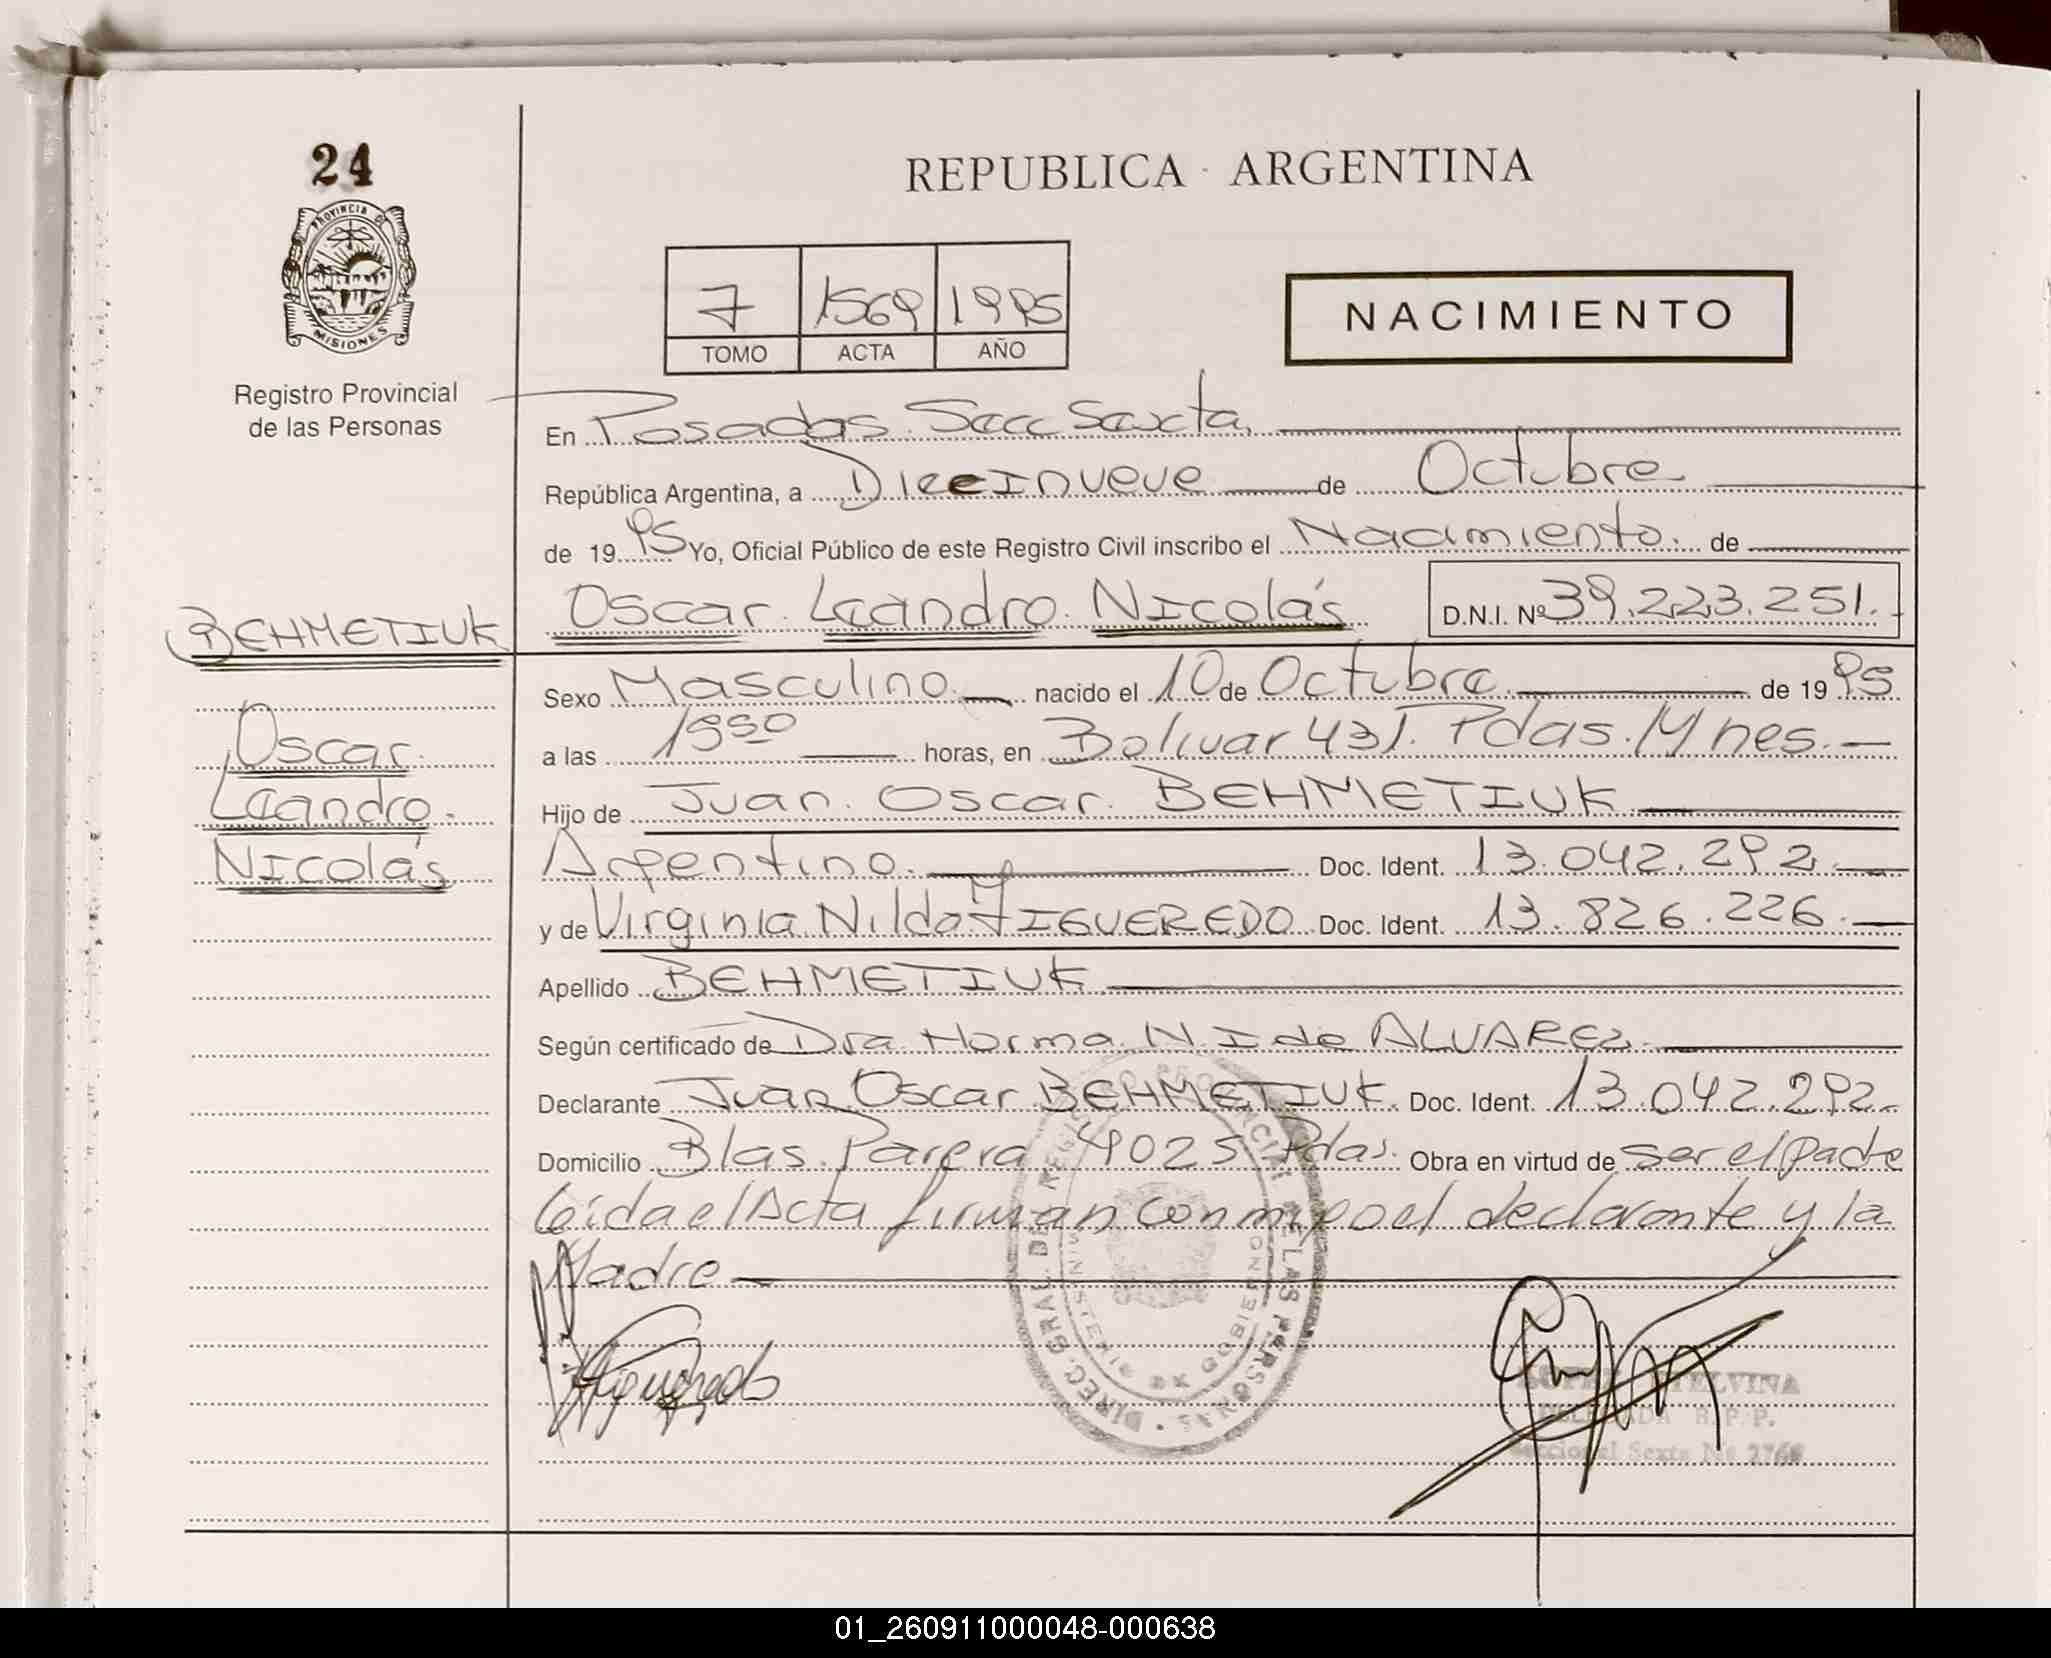 24
PROVINCIA DE
MISIONES
Registro Provincial
de las Personas
BEHMETIUK
Oscar.
Leandro.
Nicolás
REPUBLICA ARGENTINA
7 1569 1995
TOMO ACTA AÑO
NACIMIENTO
En Posadas. Secc Sexta,
República Argentina, a Diecinueve de Octubre
de 1995 Yo, Oficial Público de este Registro Civil inscribo el Nacimiento. de
Oscar. Leandro. Nicolás D.N.I. Nº 39.223.251.
Sexo Masculino. nacido el 10 de Octubre. de 1995
a las horas, en Bolivar 431. Pdas. Mnes.
Hijo de Juan. Oscar. BEHMETIUK
Argentino. Doc. Ident. 13.042.292.
y de Virginia Nilda FIGUEREDO Doc. Ident. 13.826.226.
Apellido BEHMETIUK
Según certificado de Dra. Norma N. I de ALVAREZ.
Declarante Juan Oscar BEHMETIUK. Doc. Ident. 13.042.292.
Domicilio Blas. Parera 4025 Pdas. Obra en virtud de ser el padre
Leída el Acta firman conmigo el declarante y la
Madre
DIREC. GRAL. DE REGISTRO PROVINCIAL DE LAS PERSONAS
MINISTERIO DE GOBIERNO
Figueredo
LOPEZ ETELVINA
DELEGADA R.P.P.
Seccional Sexta Nº
01_260911000048-000638